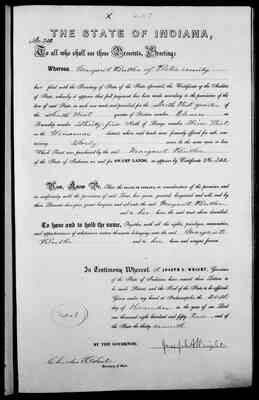 THE STATE OF INDIANA,
To all who shall see these Presents, Greeting:
Whereas, Margaret
has filed with the Secretary of State of the State aforesaid, the Certificate of the Auditor
of State, whereby it appears that full payment has been made according to the provisions of the
law of said State in such case made and provided for the South West quarter
of the South West quarter of Section number Eleven in
Township number Thirty-five North of Range number
in the Winamac district where said lands were formerly offered for sale, con-
taining forty acres to the same more or less
Which Tract was purchased by the said Margaret
of the State of Indiana as and for SWAMP LANDS, as appears by Certificate No.
Now, Know Ye, That the STATE OF INDIANA, in consideration of the premises and
in conformity with the provisions of said Laws, has given, granted, bargained and sold, and by
these Presents does give, grant, bargain and sell unto the said Margaret
and to her heirs the said tract above described.
To have and to hold the same, Together with all the rights, privileges, immunities,
and appurtenances of whatsoever nature thereunto belonging, unto the said Margaret
and to her heirs and assigns forever.
In Testimony Whereof, I, JOSEPH A. WRIGHT, Governor
of the State of Indiana have caused these Letters to
be made Patent, and the Seal of the State to be affixed.
Given under my hand at Indianapolis, the
day of November in the year of our Lord
one thousand eight hundred and fifty and
of the State the thirty
Seal
BY THE GOVERNOR.
Joseph A. Wright
Secretary of State.